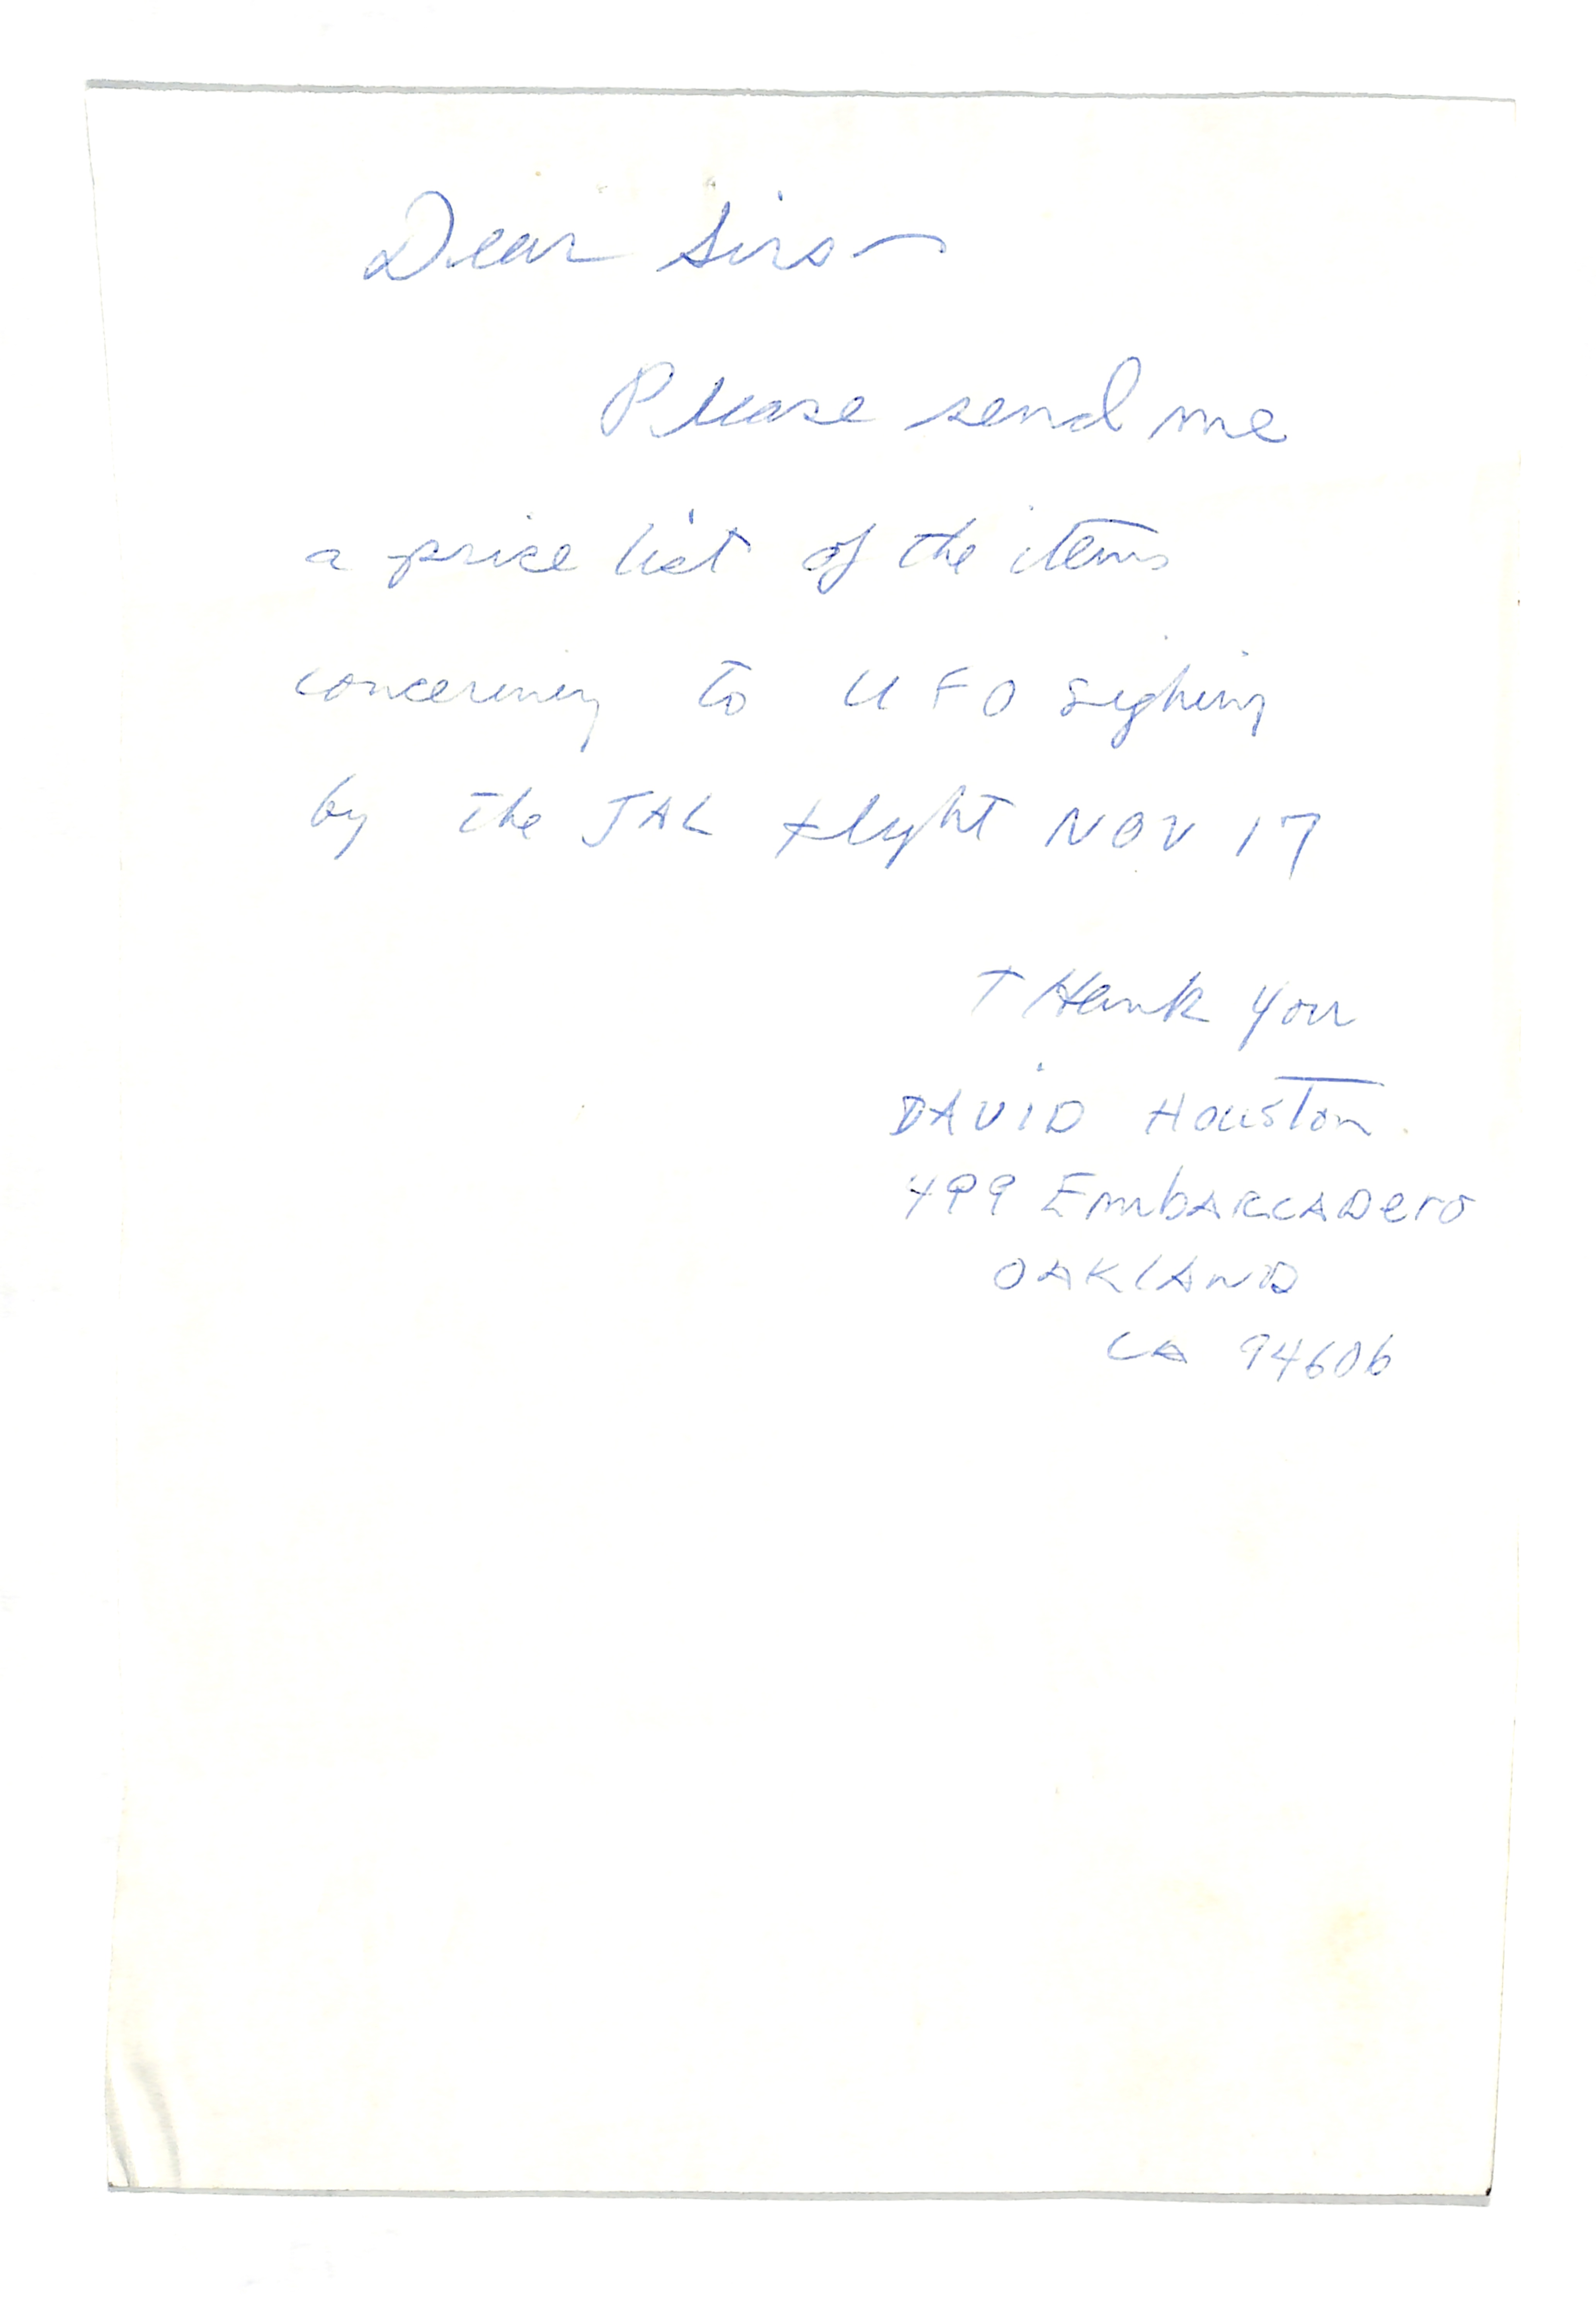 Dear Sirs —
Please send me
a price list of the items
concerning to UFO sighing
by the JAL flight NOV 17
THank you
DAVID Houston
499 EmbARCADero
OAKLAND
CA 94606